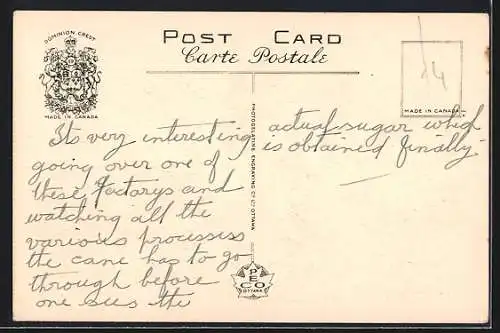 DOMINION CREST
MADE IN CANADA
POST CARD
Carte Postale
14
MADE IN CANADA
Its very interesting
going over one of
these factorys and
watching all the
various processess
the cane has to go
through before
one sees the
PHOTOGELATINE ENGRAVING CO. LTD. OTTAWA
PECO
OTTAWA
actual sugar which
is obtained finally